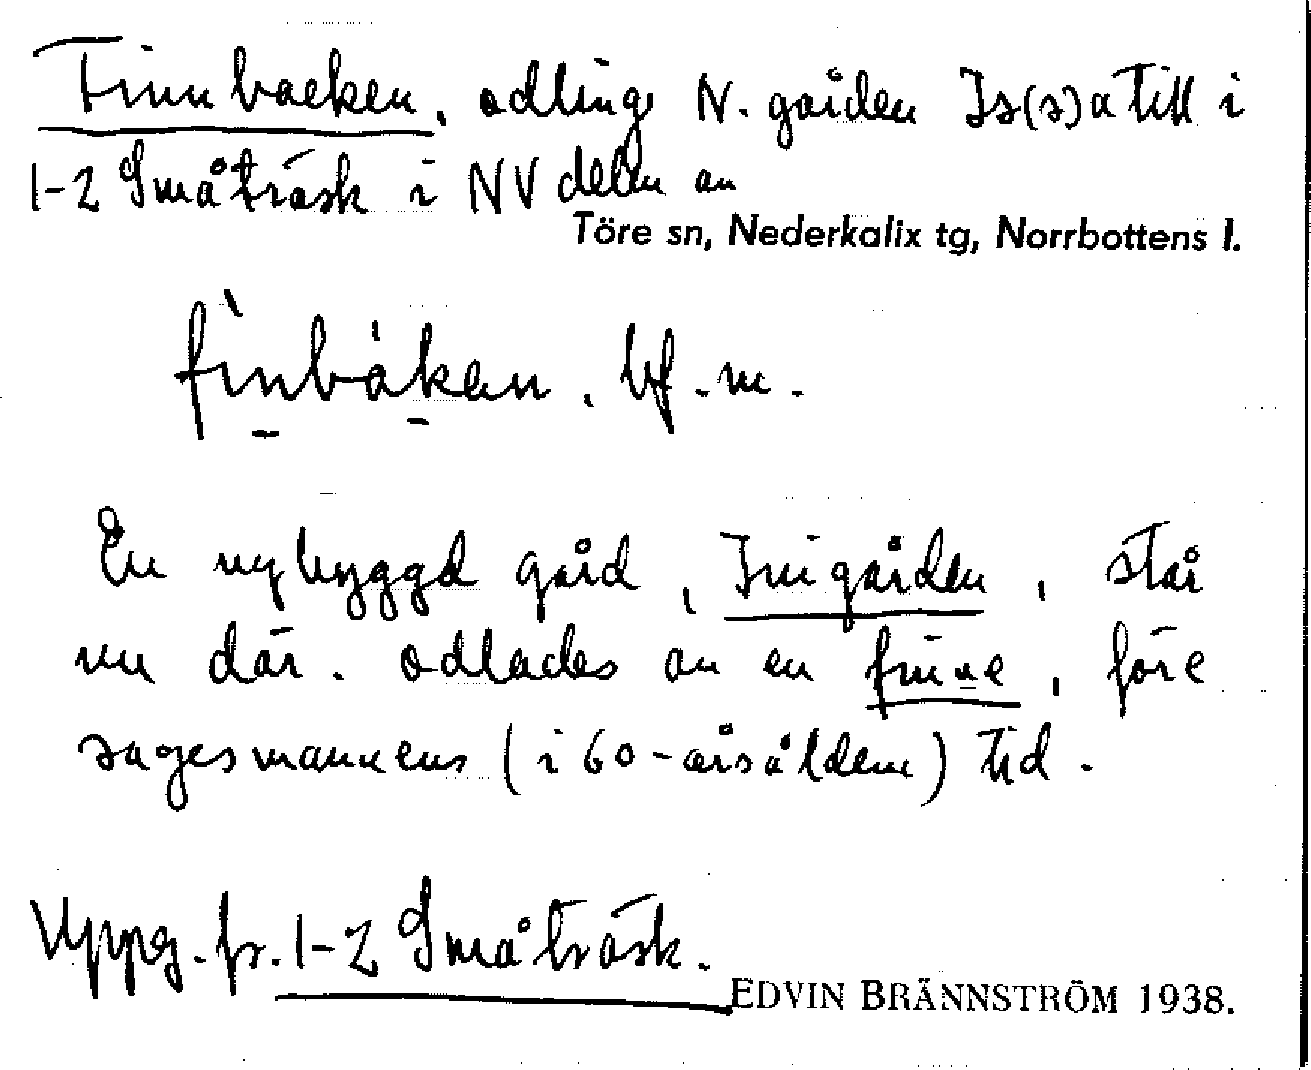 Finnbacken, odling N. gården Is(s)a till i
1-2 Småträsk i NV delen av
Töre sn, Nederkalix tg, Norrbottens l.
fìnbákan. bf. m.
En nybyggd gård, Inigården, står
nu där. Odlades av en finne, före
sagesmannens (i 60-årsåldern) tid.
Uppg. fr. 1-2 Småträsk.
EDVIN BRÄNNSTRÖM 1938.